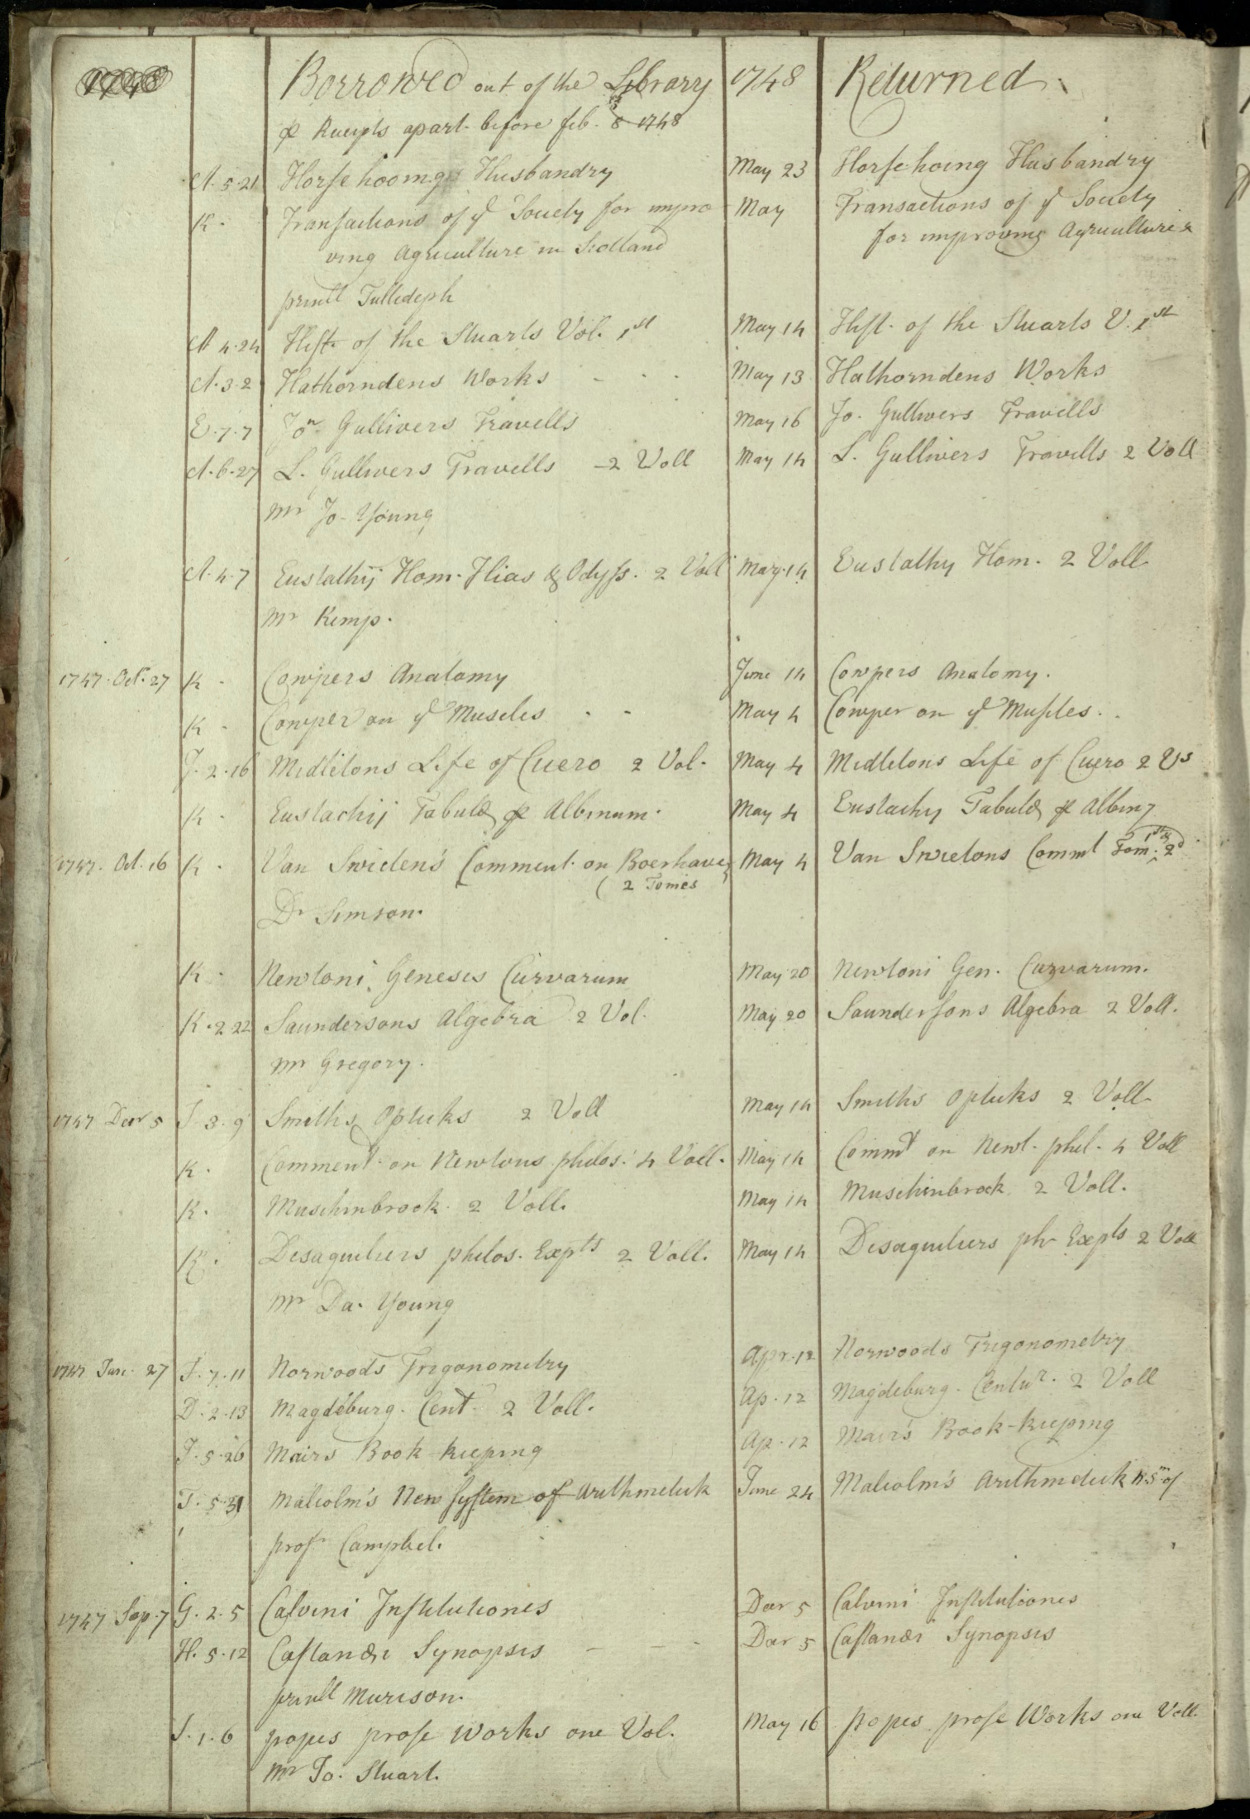 1748 Borrowed out of the Library 1748 Returned
& Receipts apart before feb. 8 1748
A. 5. 21 Horse hooing Husbandry May 23 Horse hoeing Husbandry
K. Transactions of ye Society for impro May Transactions of ye Society
ving Agriculture in Scotland for improving Agriculture &
prinll Tullideph
A 4. 24 Hist. of the Stuarts Vol. 1st May 14 Hist. of the Stuarts V. 1st
A. 3. 2 Hathorndens Works - - - May 13 Hathorndens Works
E. 7. 7 Jon. Gullivers Travells May 16 Jo. Gullivers Travells
A. 6. 27 L. Gullivers Travells - 2 Voll May 14 L. Gullivers Travells 2 Voll
Mr Jo. Young
A. 4. 7 Eustathij Hom. Ilias & Odyss. 2 Voll May. 14 Eustathy Hom. 2 Voll
Mr Kemp.
1747. Oct. 27 K. Cowpers Anatomy June 14 Cowpers Anatomy.
K. Cowper on ye Muscles - - May 4 Cowper on ye Muscles. .
J. 2. 16 Midletons Life of Cicero 2 Vol. May 4 Midletons Life of Cicero 2 Vs
K. Eustachij Tabulæ & Albinum. May 4 Eustachy Tabulæ & Albiny
1747. Oct. 16 K. Van Swieten's Comment. on Boerhave May 4 Van Swietens Commt Tom. 1st & 2d
( 2 Tomes
Dr Simson.
K. Newtoni Genesis Curvarum May 20 Newtoni Gen. Curvarum.
K. 2 22 Saundersons Algebra 2 Vol. May 20 Saundersons Algebra 2 Voll.
Mr Gregory.
1747 Decr 5 J. 3. 9 Smiths Opticks 2 Voll May 14 Smiths Opticks 2 Voll
K. Comment. on Newtons philos. 4 Voll. May 14 Commt on Newt. phil. 4 Voll
K. Muschinbrook. 2 Voll. May 14 Muschinbrock 2 Voll.
K. Desaguliers philos. Expts 2 Voll. May 14 Desaguliers ph Expts 2 Voll
Mr Da. Young
1747 27 J. 7. 11 Norwoods Trigonometry Apr. 12 Norwoods Trigonometry
D. 2. 13 Magdeburg. Cent. 2 Voll. Ap. 12 Magdeburg. Centur. 2 Voll
J. 5. 26 Mairs Book keeping Ap. 12 Mair's Book-keeping
J. 5. 31 Malcolm's New System of Arithmetick June 24 Malcolm's Arithmetick
prof. Campbel.
1747 Sep. 7 G. 2. 5 Calvini Institutiones Decr 5 Calvini Institutiones
H. 5. 12 Castanæi Synopsis - - - Decr 5 Castanæi Synopsis
prinll Murison.
J. 1. 6 popes prose Works one Vol. May 16 popes prose Works one Voll
Mr Jo. Stuart.